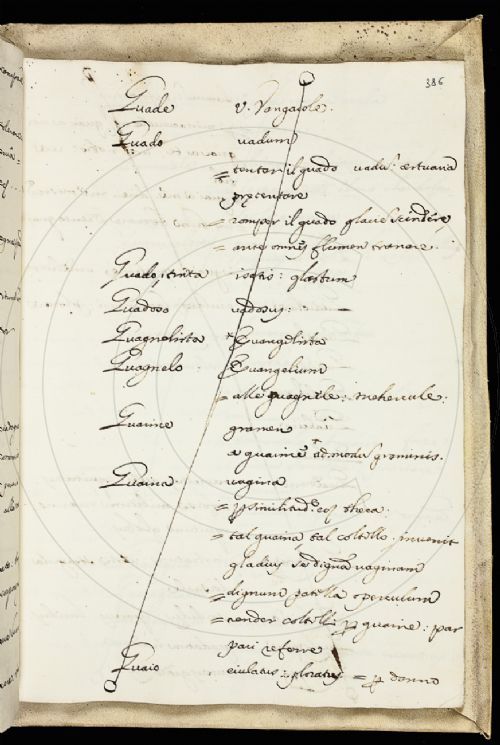 386
Guade v. Vangaiole.
Guado vadum
= tentar il guado vadu
prętentare
= romper il guado glaciē scindere
= ante omnes flumen tranare.
Guado, tinta isatis: glastum
Guadoso vadosus: —
Guagnelista * Evangelista
Guagnelo Evangelium
= alle guagnele: mehercule:
Guaime gramen
a guaime ad modū graminis.
Guaina vagina
= similitud. theca:
= tal guaina, tal coltello: invenit
gladius se dignā vaginam
= dignum patella perculum
= render coltelli guaine: par
pari referre
Guaio eiulatus: ploratus = danno